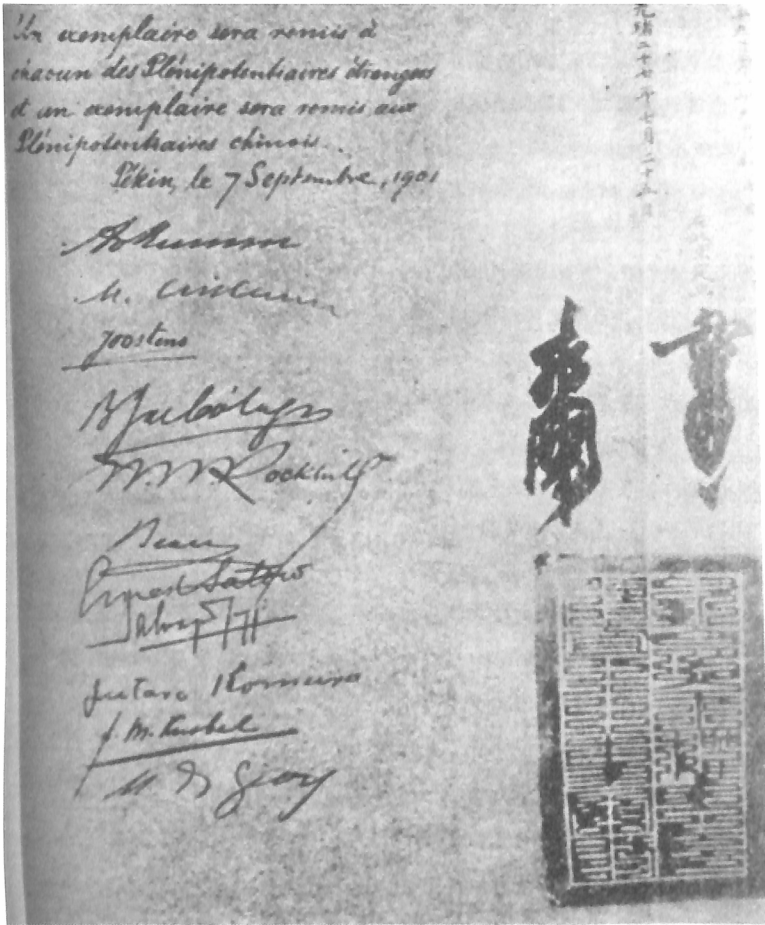 Un exemplaire sera remis à
chacun des Plénipotentiaires étrangers
et un exemplaire sera remis aux
Plénipotentiaires chinois.
Pékin, le 7 Septembre, 1901
A v Mumm
M. Czikann
Joostens
B J de Cólogan
W. W. Rockhill
Beau
Ernest Satow
Jutaro Komura
F. M. Knobel
M de Giers
光緒二十七年七月二十五日